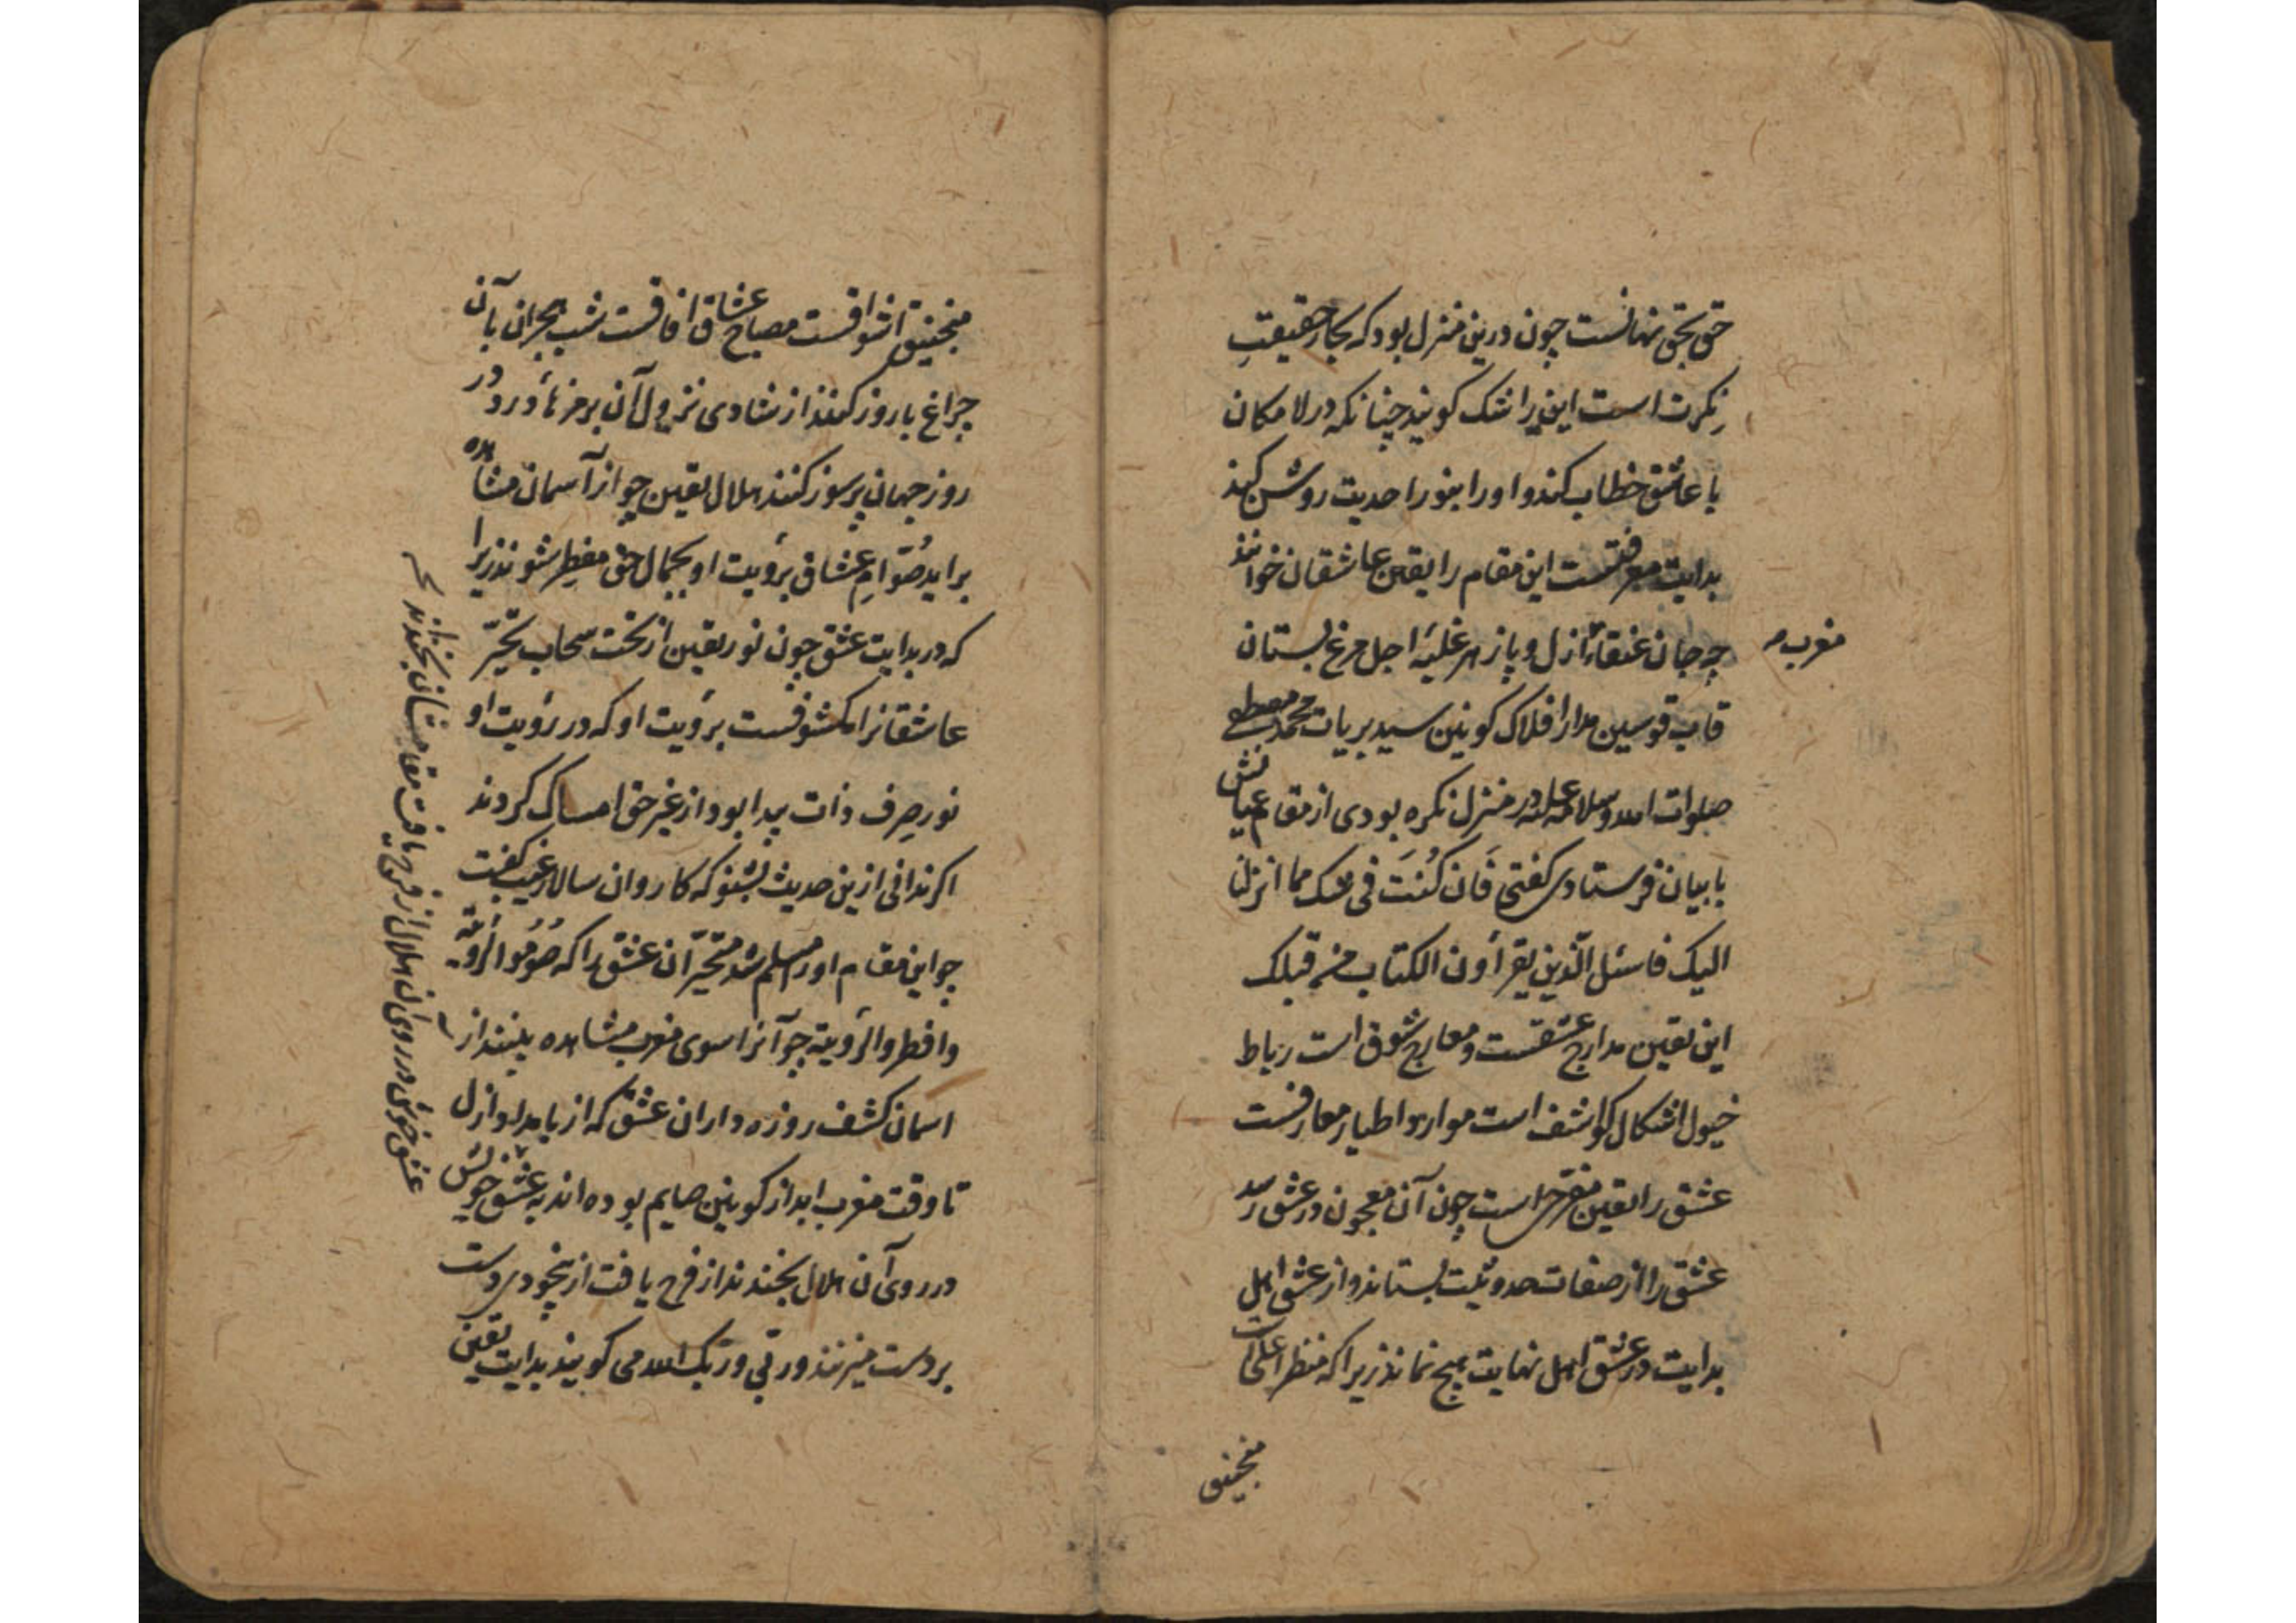 حق بحق نهانست چون درین منزل بود که بحار حقیقتِ
نکرت است این را شک کویند چنانکه در لامکان
با عاشق خطاب کند و او را بنور احدیت روشن کند
بدایت معرفتست این مقام را یقین عاشقان خوانند
چه جان عنقاء ازل و باز هر غلبهٔ اجل مرغ بستان
مغرب
قاب قوسین مدار افلاک کونین سید بریات محمد مصطفی
صلوات الله وسلامه علیه در منزل نکره بودی از مقام عیانش
با بیان فرستادی کفتی فَان کُنتَ فی شک مما انزلنا
الیک فاسئل الّذین یقرأون الکتاب من قبلک
این یقین مدارج عشقست و معارج شوق است رباط
خیول اشکال کواشف است موارد اطیار معارفست
عشق را یقین مفرحی است چون آن معجون در عشق رسد
عشق را از صفات حدوثیت بستاند و از عشق اهل
بدایت در عشق اهل نهایت هیچ نماند زیرا که منظر اعلی
منجنیق
منجنیق اشواقست مصباح عشاق افاقست شب هجران بآن
چراغ با روز کنند از شادی نزول آن بر خرمنهاء درد در
روز جهان پرسوز کنند هلال یقین چو از آسمان مشاهده
برآید صُوّامِ عشاق برؤیت او بجمال حق مفطِر شوند زیرا
که در بدایت عشق چون نور یقین از تخت سحاب تحیّر
عاشقانرا مکشوفست برؤیت او که در رؤیت او
نور صِرف ذات پیدا بود از غیر حق امساک کردند
اکر ندانی ازین حدیث بشنو که کاروان سالار غیب کفت
چو این مقام او را مسلم شد متحیّران عشق را که صُومُوا لرُؤیَته
وافطروا لرؤیته چو آنرا سوی مغرب مشاهده بینند از
اسمان کشف روزه داران عشق که از بامداد ازل
تا وقت مغرب ابد از کونین صایم بوده اند به عشق خویش
در روی آن هلال بخندند از فرح یافت از بیخودی دست
بر دست میزنند و ربی و ربک الله می کویند بدایت یقین
عشق خویش در روی آن هلال از فرح یافت مقام مستان بخندند